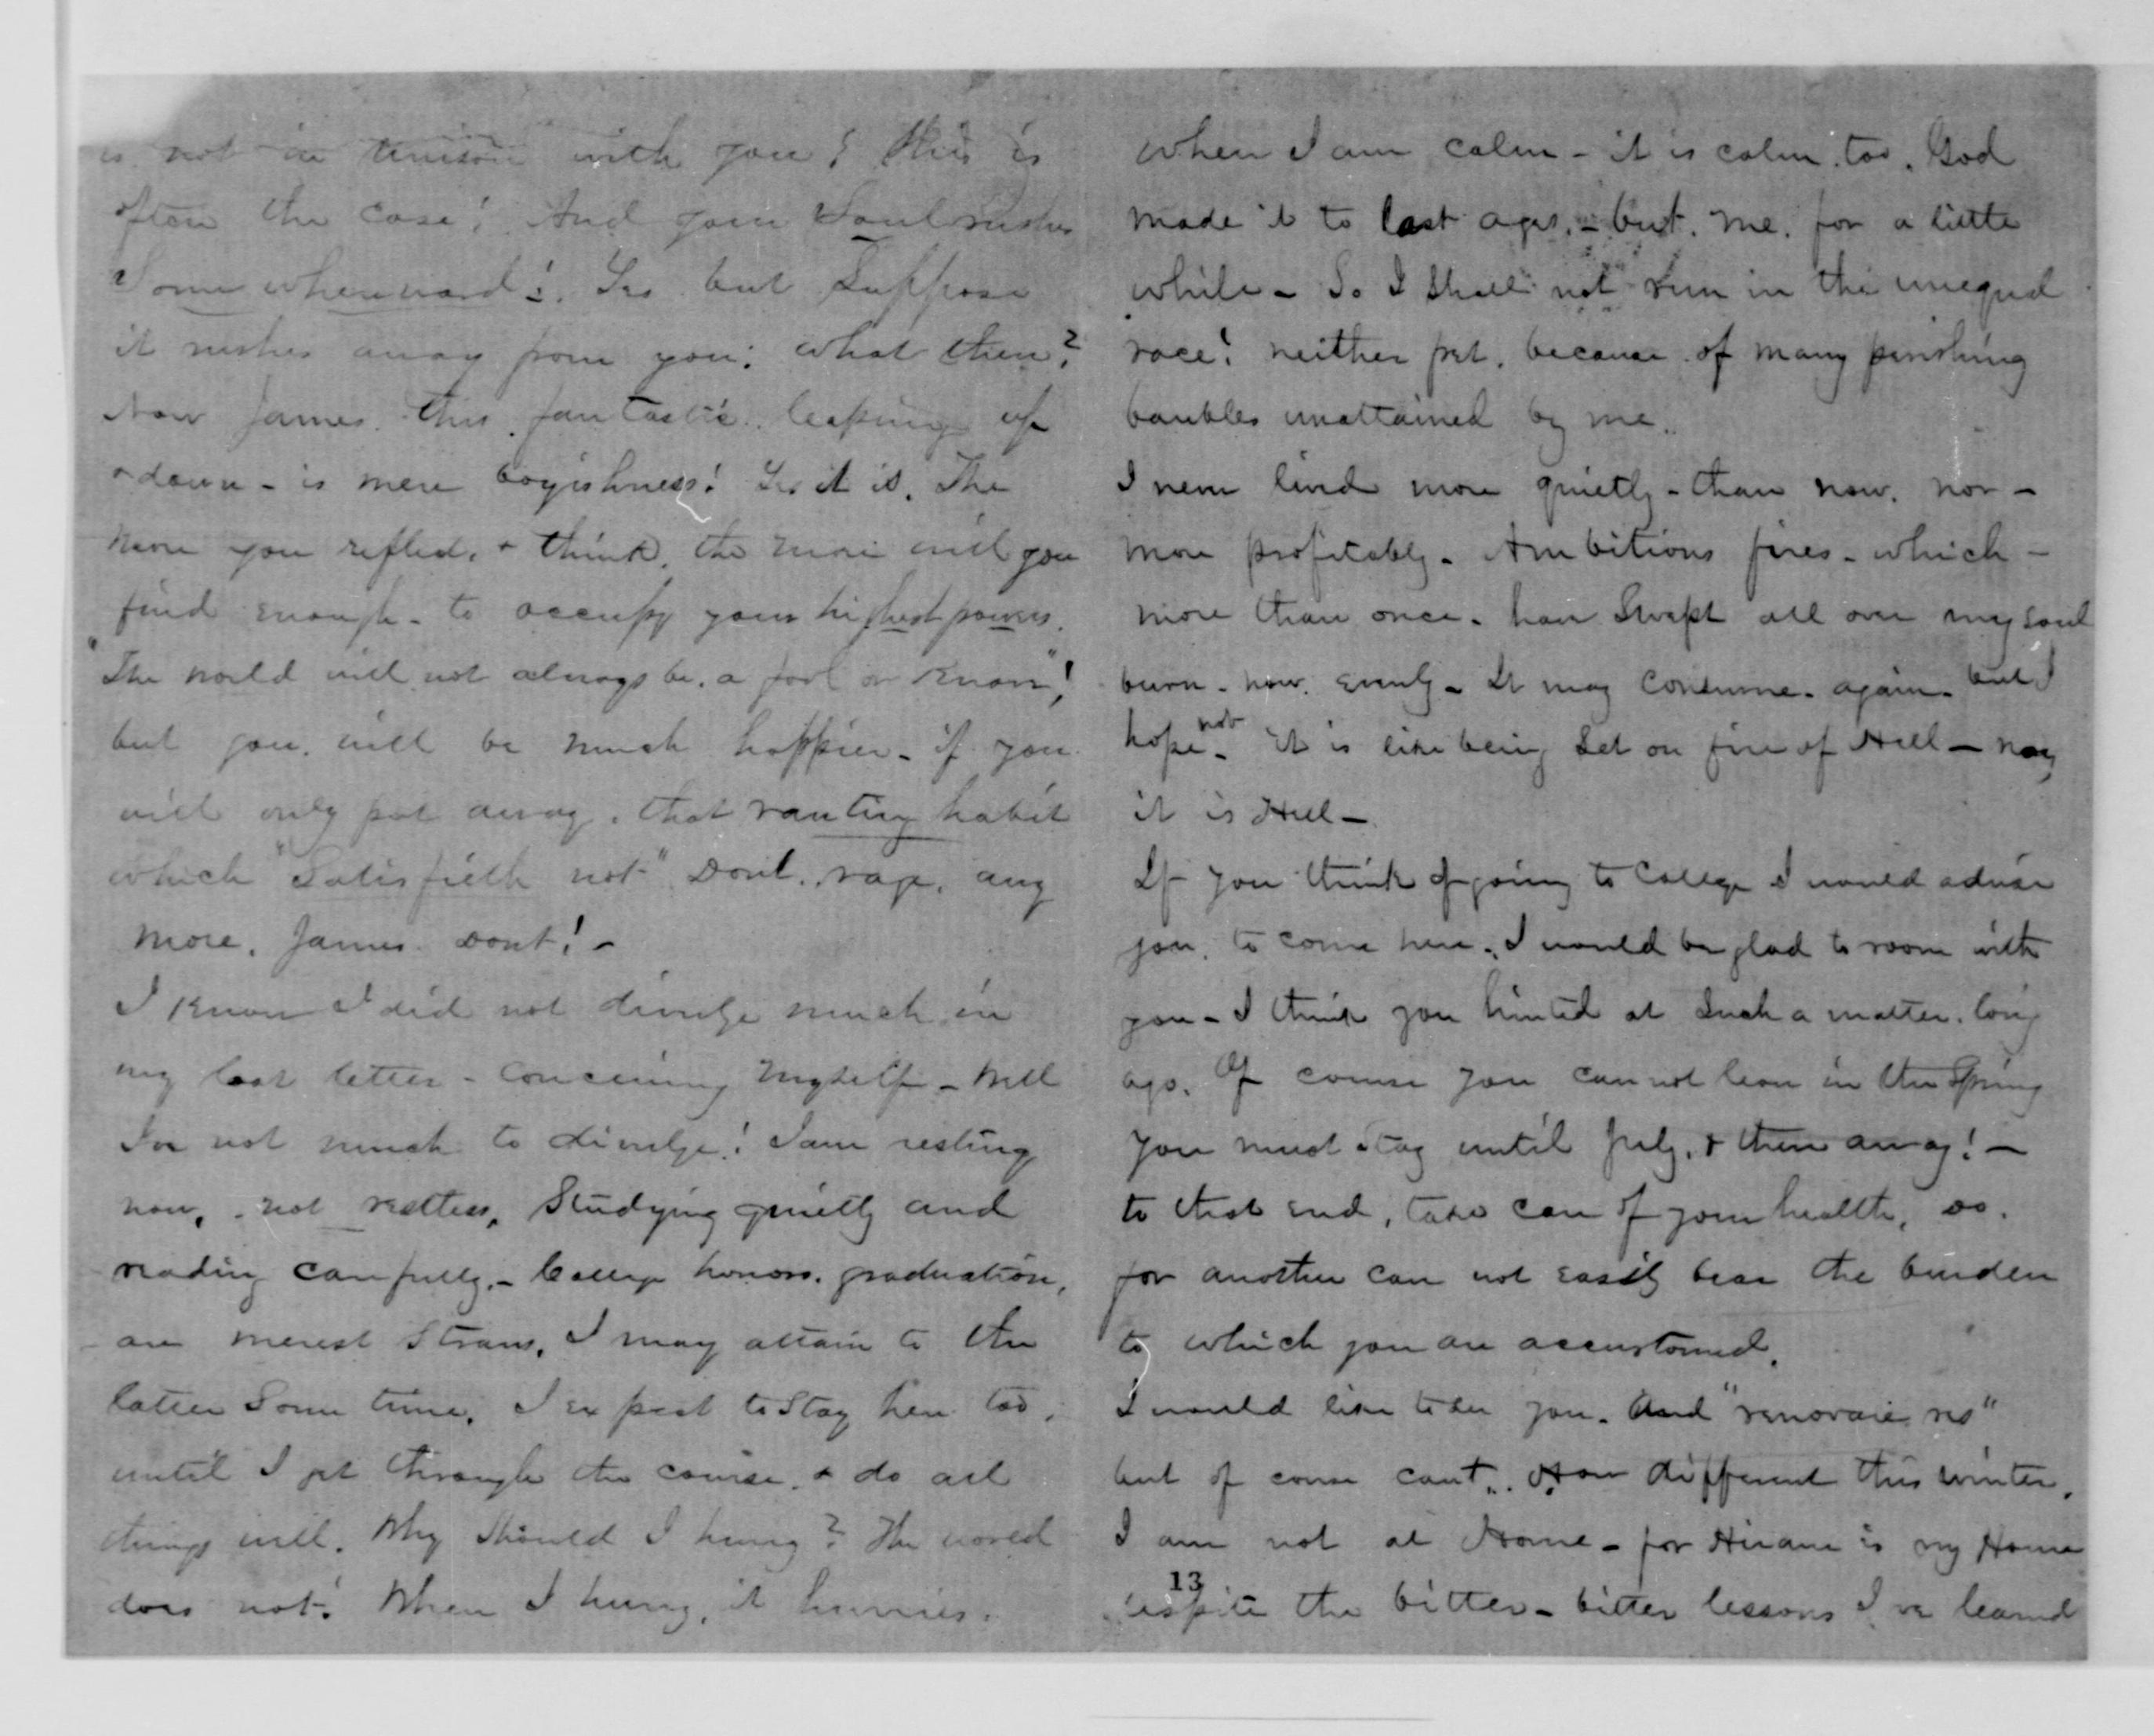 is not in unison with you! this is
often the case! And your Soul rushes
"Somewhereward"! Yes but Suppose
it rushes away from you: what then?
Now James this fantastic leaping up
& down - is mere boyishness! Yes it is. The
more you reflect, & think, the more will you
find enough - to occupy your highest powers.
"The world will not always be a fool or knave"!
but you will be much happier - if you
will only put away, that ranting habit
which "Satisfieth not" Dont rage any
more, James Dont! -
I know I did not divulge much in
my last letter - Concerning Myself - Well
I've not much to divulge! I am resting
now, not restless, Studying quietly and
reading carefully. - College honors, graduation,
are merest Straws, I may attain to the
latter Some time, I expect to Stay here too,
until I get through the course, & do all
things well. Why Should I hurry? The world
does not! When I hurry, it hurries.
When I am calm - it is calm too. God
made it to last ages, - but me, for a little
while - So I Shall not run in the unequal
race! neither fret, because of many perishing
baubles unattained by me.
I never lived more quietly - than now, nor -
more profitably - Ambitions fires - which -
more than once - have Swept all over my soul
burn - now evenly - It may Consume again - but I
hope not - it is like being Set on fire of Hell - nay
it is Hell -
If you think of going to College I would advise
you, to come here, I would be glad to room with
you - I think you hinted at Such a matter, long
ago. Of course you can not leave in the Spring
you must stay until July, & then away! -
to that end, take care of your health, do.
for another can not easily bear the burden
to which you are accustomed.
I would like to see you. And "renovare res"
but of course cant. How different this winter,
I am not at Home - for Hiram is my Home
despite the bitter - bitter lessons I've learned
13